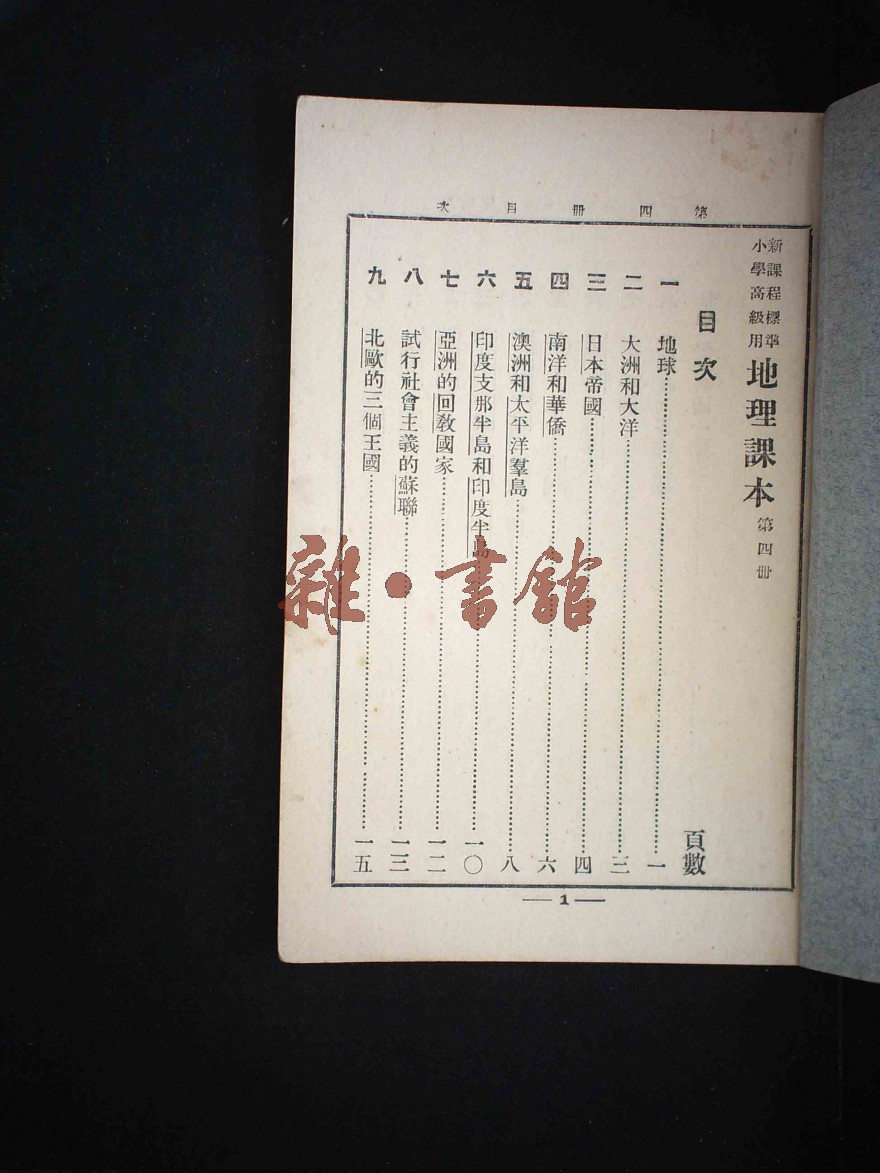 第四冊目次
新課程標準
小學高級用
地理課本 第四冊
目次 頁數
一 地球 一
二 大洲和大洋 三
三 日本帝國 四
四 南洋和華僑 六
五 澳洲和太平洋羣島 八
六 印度支那半島和印度半島 一〇
七 亞洲的回教國家 一二
八 試行社會主義的蘇聯 一三
九 北歐的三個王國 一五
1
雜·書館